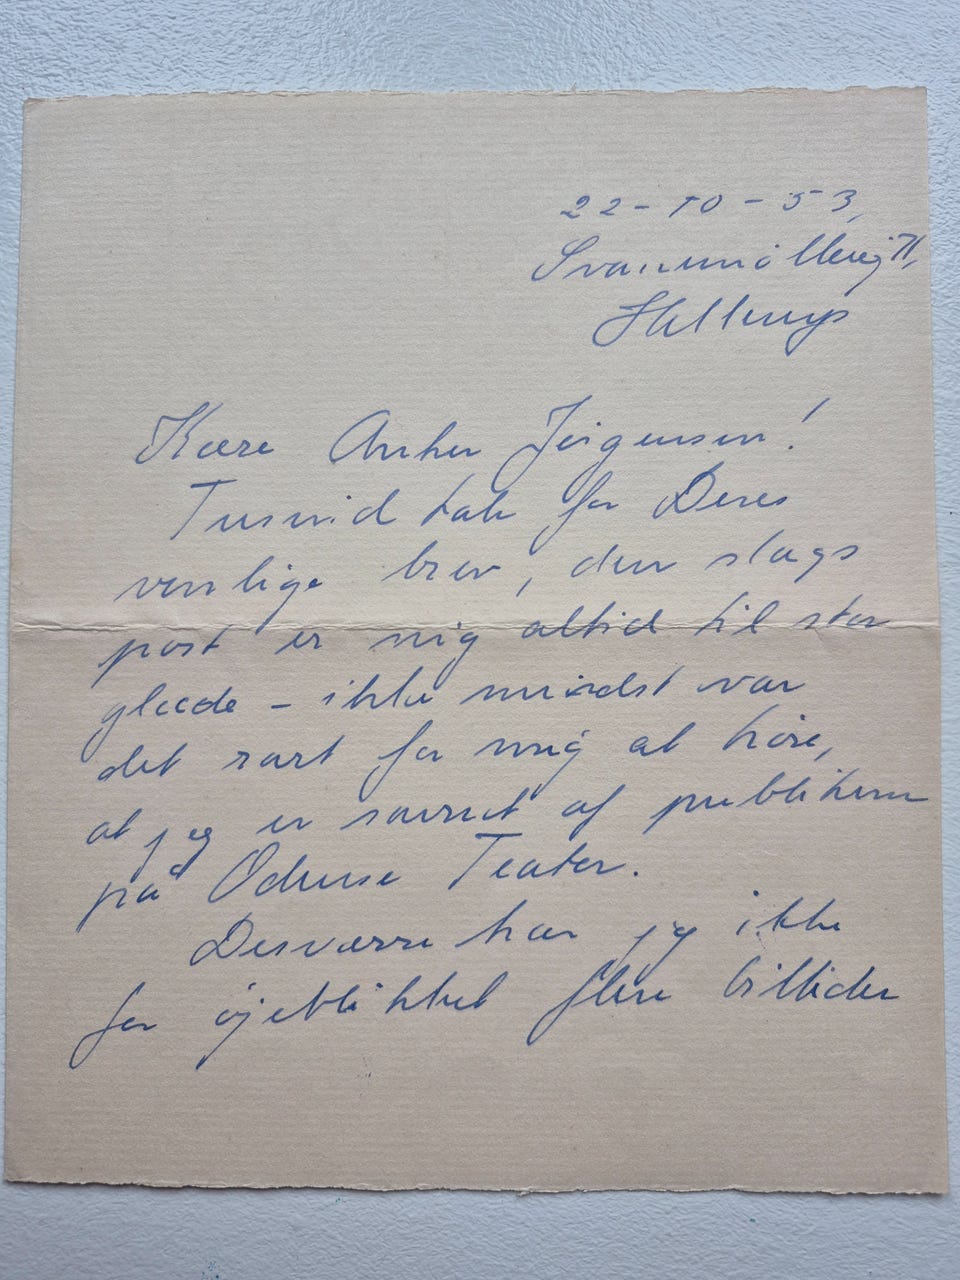 22-10-53,
Svanemöllevej 71,
Hellerup
Kære Anker Jörgensen!
Tusind tak for Deres
venlige brev, den slags
post er mig altid til stor
glæde - ikke mindst var
det rart for mig at höre,
at jeg er savnet af publikum
på Odense Teater.
Desværre har jeg ikke
for öjeblikket flere billeder